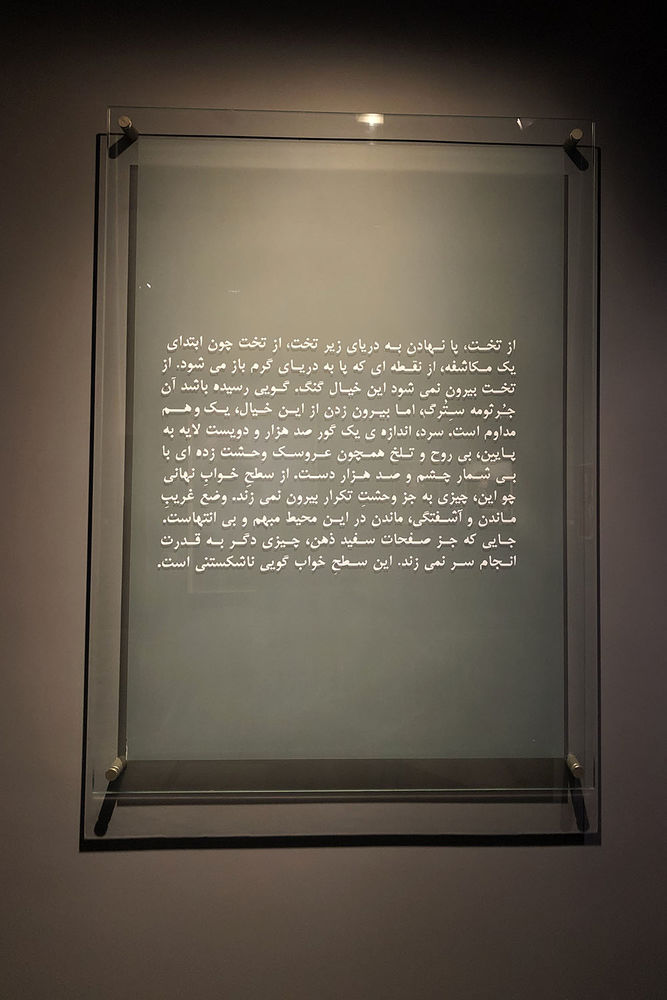 از تخت، پا نهادن به دریای زیر تخت، از تخت چون ابتدای
یک مکاشفه، از نقطه ای که پا به دریای گرم باز می شود. از
تخت بیرون نمی شود این خیال گنگ. گویی رسیده باشد آن
جرثومه سترگ، اما بیرون زدن از این خیال، یک وهم
مداوم است. سرد، اندازه ی یک گور صد هزار و دویست لایه به
پایین، بی روح و تلخ همچون عروسک وحشت زده ای با
بی شمار چشم و صد هزار دست. از سطحِ خوابِ نهانی
چو این، چیزی به جز وحشتِ تکرار بیرون نمی زند. وضع غریبِ
ماندن و آشفتگی، ماندن در این محیط مبهم و بی انتهاست.
جایی که جز صفحات سفید ذهن، چیزی دگر به قدرت
انجام سر نمی زند. این سطحِ خواب گویی ناشکستنی است.